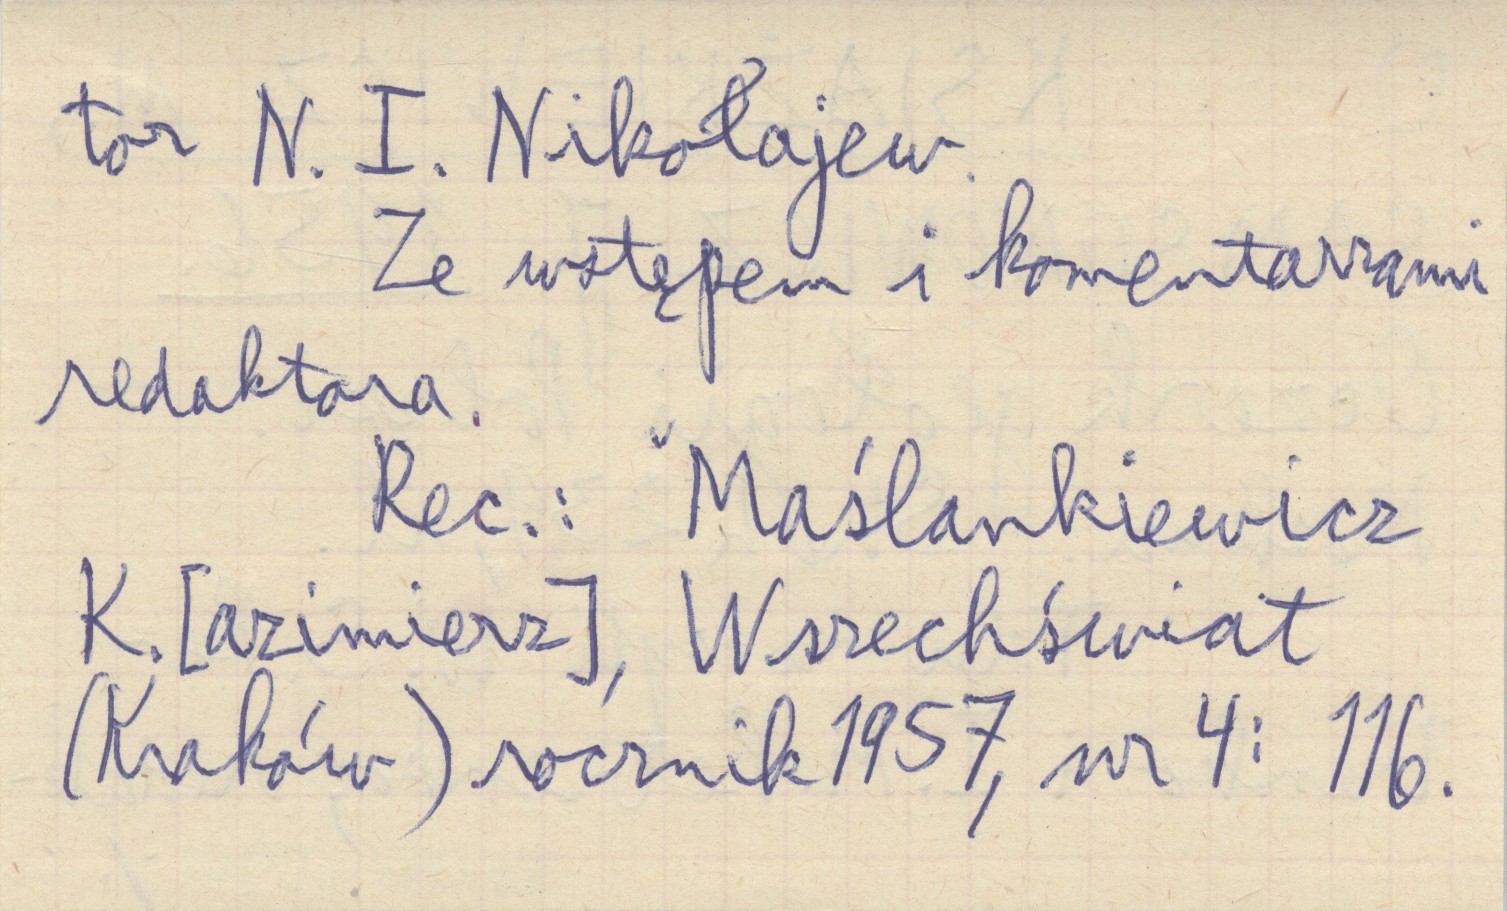 tor N. I. Nikołajew.
Ze wstępem i komentarzami
redaktora.
Rec.: Maślankiewicz
K.[azimierz], Wszechświat
(Kraków) rocznik 1957, nr 4: 116.